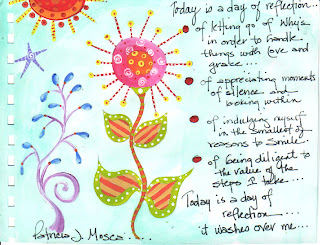 Today is a day of reflection...
of letting go of Why's
in order to handle
things with Love and
grace...
of appreciating moments
of silence and
looking within
of indulging myself
in the smallest of
reasons to smile
of being diligent to
the value of the
steps I take....
Today is a day of
reflection....
it washes over me...
Patricia J. Mosca....